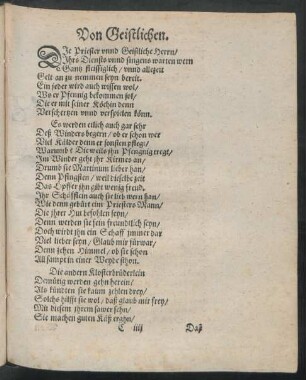 Von Geistlichen.
DIe Priester vnnd Geistliche Herrn/
Ihrs Diensts vnnd singens warten wern
Gantz fleissiglich/ vnnd allezeit
Gelt an zu nemmen seyn bereit.
Ein jeder wird auch wissen wol/
Wo er Pfennig bekommen sol/
Die er mit seiner Köchin denn
Verschertzen vnnd verspielen könn.
Es werden etlich auch gar sehr
Deß Winders begern/ ob er schon wer
Viel Kälder denn er sonsten pfleg/
Warumb? Die weils jhn Pfennig tregt/
Im Winder geht jhr Kirmes an/
Drumb sie Martinum lieber han/
Denn Pfingsten/ weil dieselbe zeit
Das Opffer jhn gibt wenig freud.
Ihr Schäfflein auch sie lieb wern han/
Wie denn gebürt ein Priesters Mann/
Die jhrer Hut befohlen seyn/
Denn werden sie seyn freundtlich seyn/
Doch wirdt jhn ein Schaff jmmer dar
Viel lieber seyn/ Glaub mir fürwar/
Denn zehen Himmel/ ob sie schon
All sampt in einer Weyde gehn.
Die andern Klosterbrüderlein
Demütig werden gehn herein/
Als köndten sie kaum zehlen drey/
Solchs hilfft sie wol/ daß glaub mir frey/
Mit diesem jhrem sawer sehn/
Sie machen guten Käß ergehn/
C iiij Daß